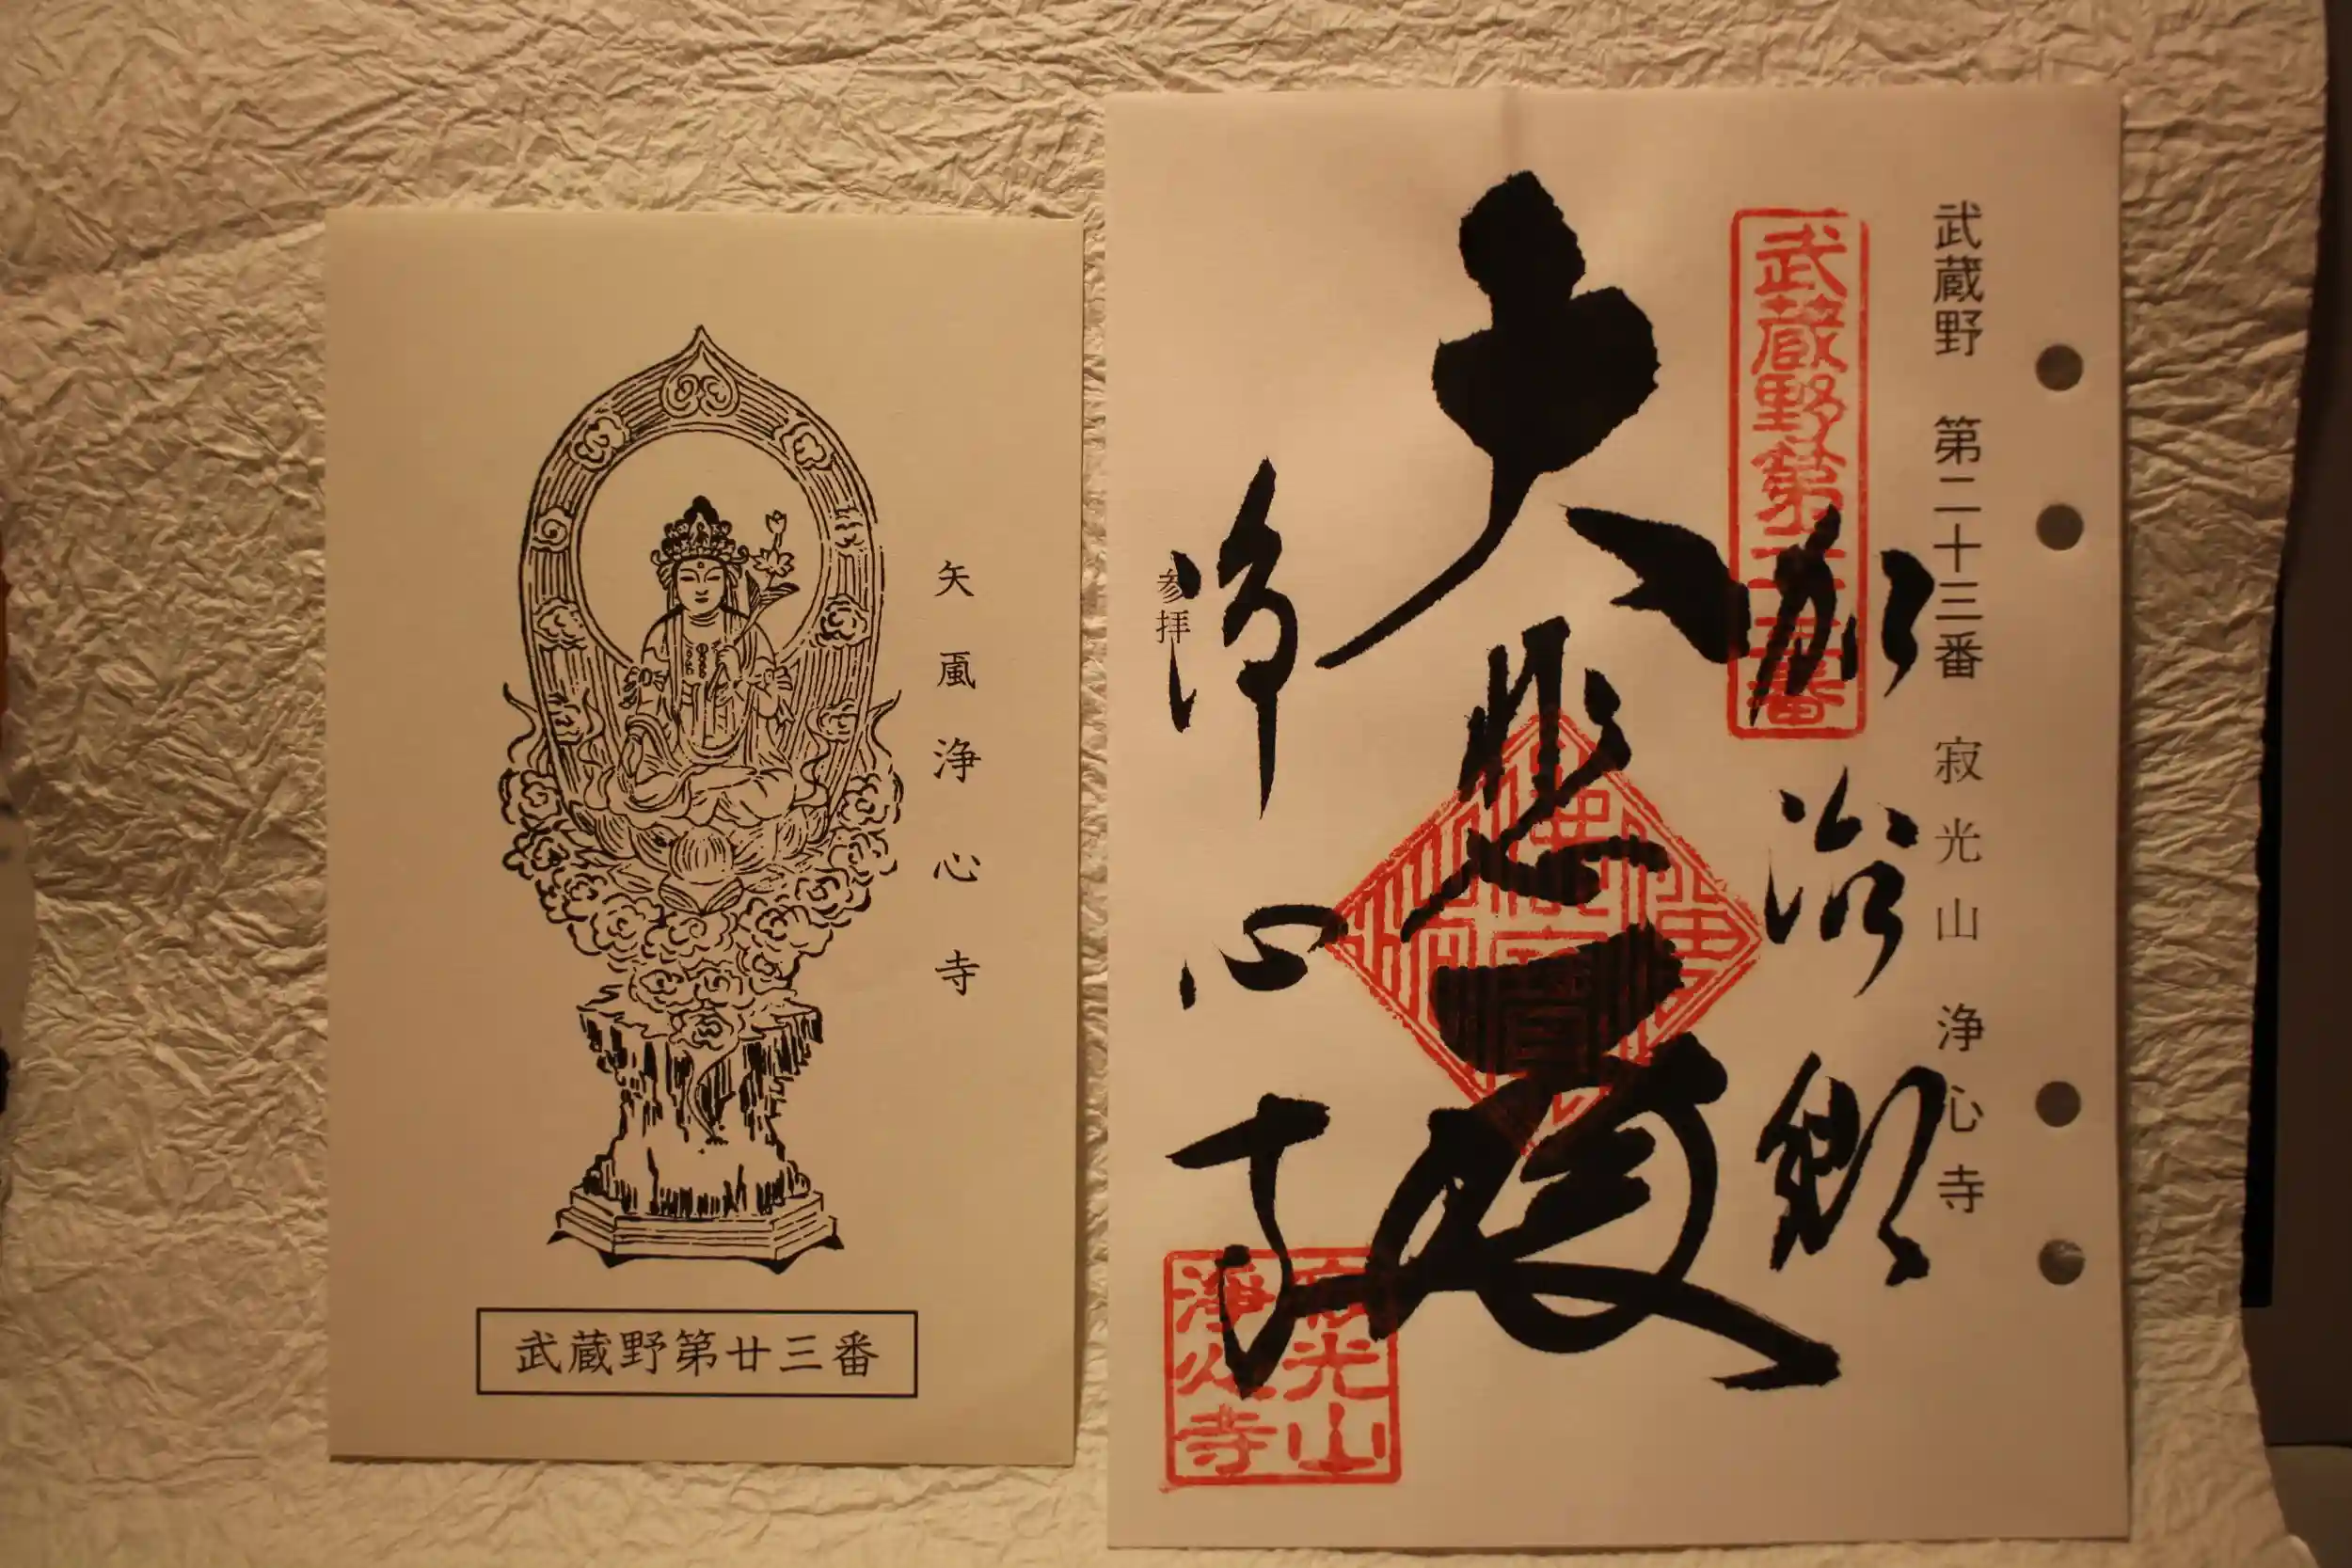 矢颪浄心寺
武蔵野第廿三番
武蔵野 第二十三番 寂光山 浄心寺
武蔵野第廿三番
加治郷
大悲殿
参拝
浄心寺
寂光山
浄心寺